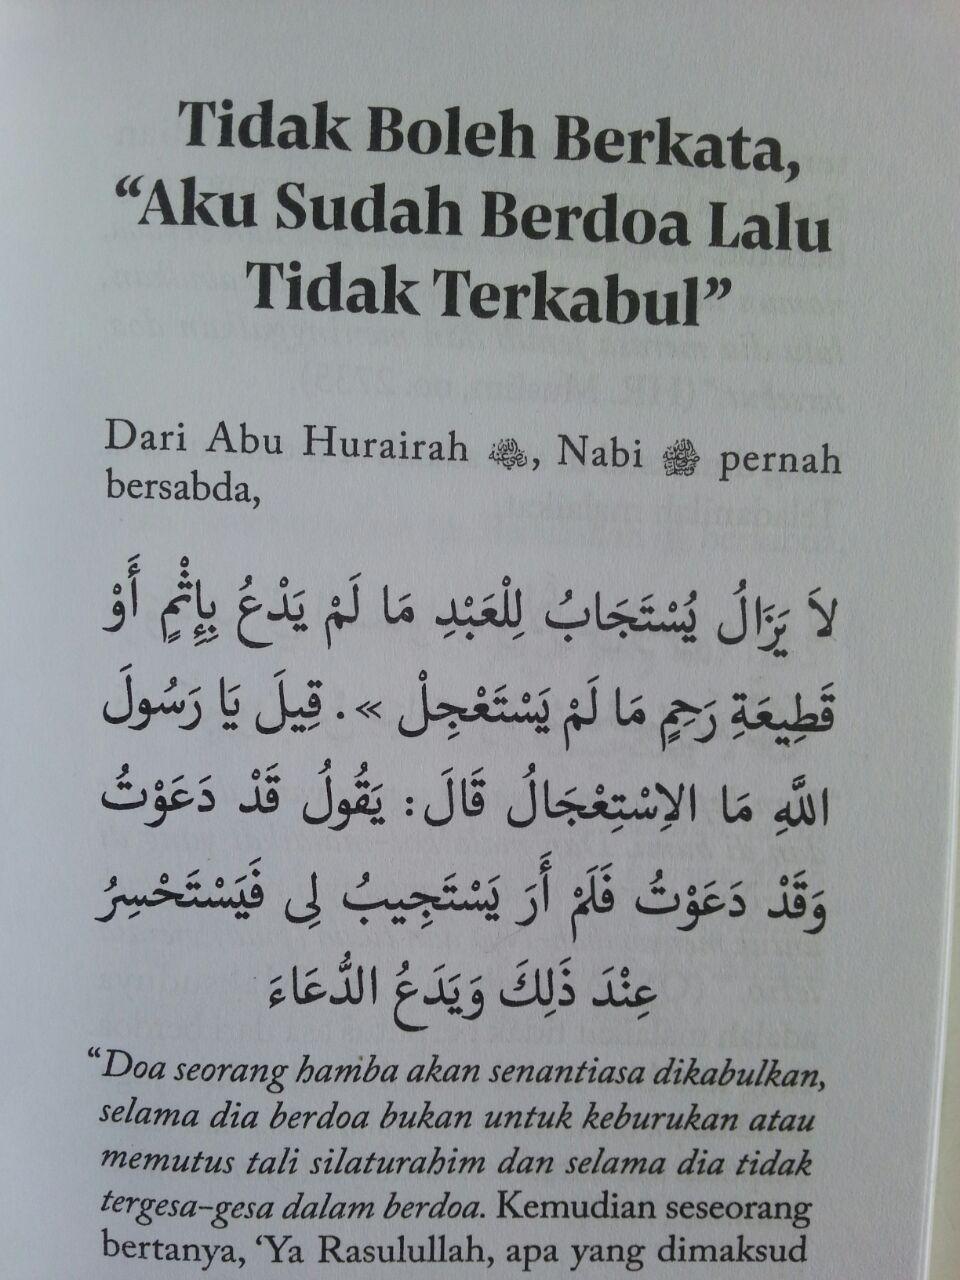 Tidak Boleh Berkata,
“Aku Sudah Berdoa Lalu
Tidak Terkabul”
Dari Abu Hurairah رضي الله عنه, Nabi ﷺ pernah
bersabda,
لاَ يَزَالُ يُسْتَجَابُ لِلْعَبْدِ مَا لَمْ يَدْعُ بِإِثْمٍ أَوْ
قَطِيعَةِ رَحِمٍ مَا لَمْ يَسْتَعْجِلْ ». قِيلَ يَا رَسُولَ
اللَّهِ مَا الاِسْتِعْجَالُ قَالَ: يَقُولُ قَدْ دَعَوْتُ
وَقَدْ دَعَوْتُ فَلَمْ أَرَ يَسْتَجِيبُ لِى فَيَسْتَحْسِرُ
عِنْدَ ذَلِكَ وَيَدَعُ الدُّعَاءَ
“Doa seorang hamba akan senantiasa dikabulkan,
selama dia berdoa bukan untuk keburukan atau
memutus tali silaturahim dan selama dia tidak
tergesa-gesa dalam berdoa. Kemudian seseorang
bertanya, ‘Ya Rasulullah, apa yang dimaksud